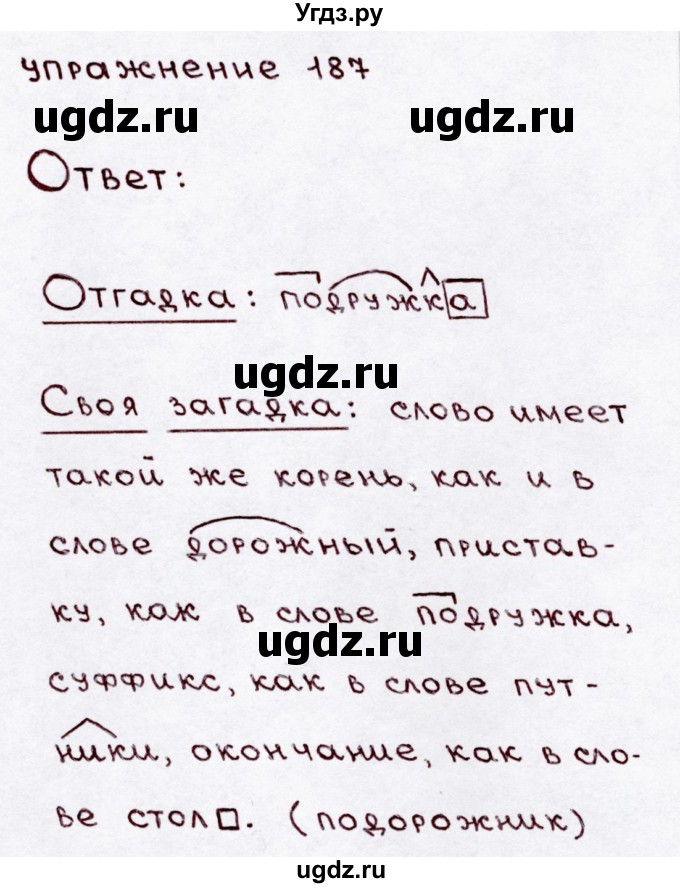 Угдз.ру
упражнение 187
ugdz.ru ugdz.ru
Ответ:
Отгадка: подружка
ugdz.ru
Своя загадка: слово имеет
такой же корень, как и в
слове дорожный, пристав-
ку, как в слове подружка,
ugdz.ru
суффикс, как в слове пут-
ники, окончание, как в сло-
ве стол□. (подорожник)
ugdz.ru